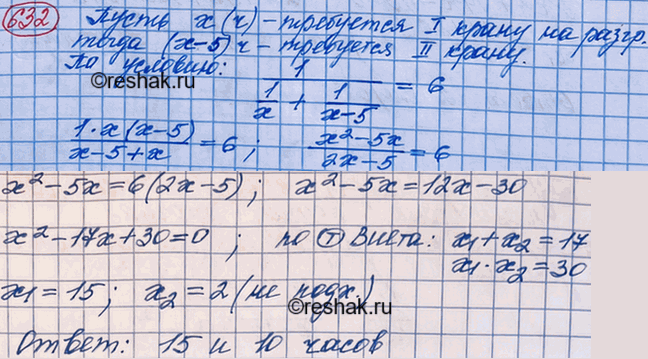 632 Пусть x (ч) - требуется I крану на разгр.
тогда (x-5) ч - требуется II крану.
По условию: 1 / (1/x + 1/(x-5)) = 6
1·x(x-5) / (x-5+x) = 6 ; (x²-5x) / (2x-5) = 6
©reshak.ru
x²-5x=6(2x-5) ; x²-5x=12x-30
x²-17x+30=0 ; по Т Виета: x₁+x₂=17
x₁·x₂=30
x₁=15 ; x₂=2 (не подх.)
©reshak.ru
Ответ: 15 и 10 часов